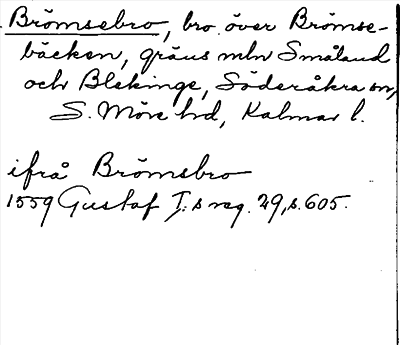 Brömsebro, bro över Brömse-
bäcken, gräns mln Småland
och Blekinge, Söderåkra sn,
S. Möre hd, Kalmar l.
ifrå Brömsbro
1559 Gustaf I:s reg. 29, s. 605.